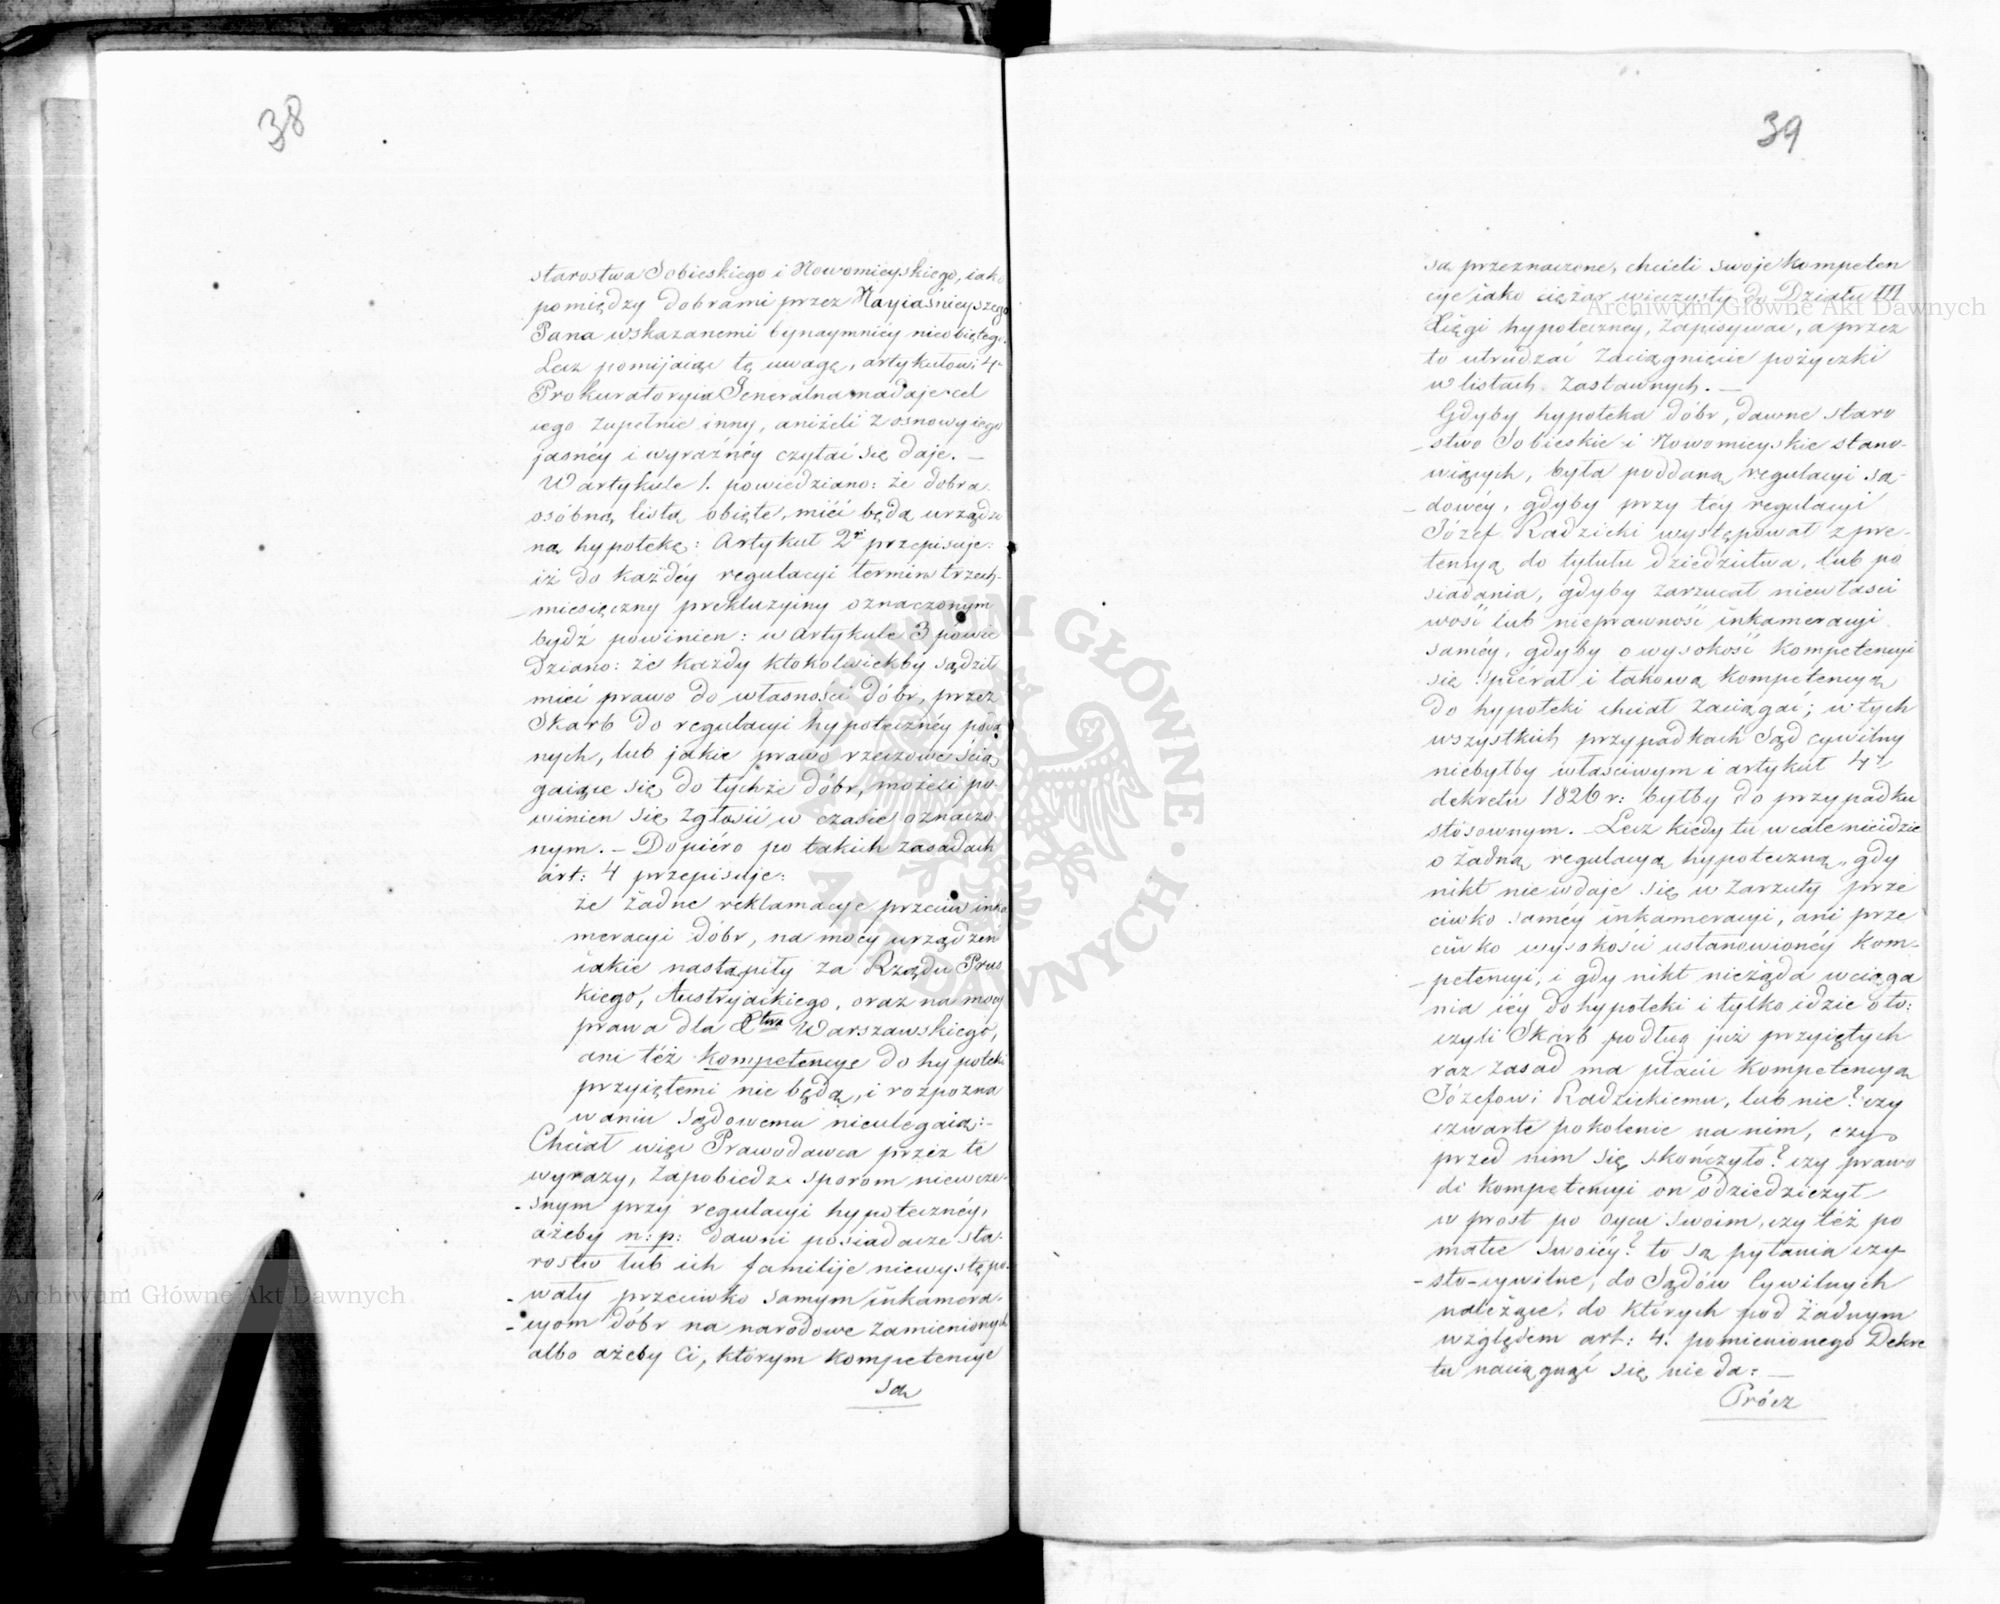 38
starostwa Sobieskiego i Nowomieyskiego, iako
pomiędzy dobrami przez Nayiaśnieyszego
Pana wskazanemi bynaymniéy nieobiętego.
Lecz pomijaiąc tę uwagę, artykułowi 4.
Prokuratoryia Generalna nadaje cel
iego zupełnie inny, aniżeli z osnowy iego
jasnéy i wyraźnéy czytać się daje. —
W artykule 1. powiedziano: że dobra
osóbną listą obięte, mieć będą urządzo
ną hypotekę: Artykuł 2i przepisuje:
iż do każdéy regulacyi termin trzech-
-miesięczny prekluzyiny oznaczonym
bydź powinien: w artykule 3 powie
dziano: że każdy ktokolwiekby sądził
mieć prawo do własności dóbr, przez
Skarb do regulacyi hypotecznéy poda
nych, lub jakie prawo rzeczowe ścią
gaiące się do tychże dóbr, możeći po-
winien się zgłosić w czasie oznaczo-
nym. — Dopiéro po takich zasadach
árt: 4 przepisuje:
że żadne reklamacye przeciw inka
meracyi dóbr, na mocy urządzeń
iakie nastąpiły za Rządu Prus
kiego, Austryjackiego, oraz na mocy
prawa dla Xtwa Warszawskiego,
ani téż kompetencye do hypoteki
przyiętemi nie będą, i rozpozna
waniu sądowemu nieulegaią:-
Chciał więc Prawodawca przez te
wyrazy, zapobiedz sporom niewcze-
-snym przy regulacyi hypotecznéy,
ażeby n: p: dawni posiadacze sta-
rostw lub ich familije niewystępo-
-wały przeciwko samym inkamera-
-cyom dóbr na narodowe zamienionych
albo ażeby ci, którym kompetencye
są
39
są przeznaczone, chcieli swoje kompeten
cye iako ciężar wieczysty do Działu III
Xięgi hypoteczney, zapisywać, a przez
to utrudzać zaciągnięcie pożyczki
w listach zastawnych. —
Gdyby hypoteka dóbr, dawne staro
-stwo Sobieskie i Nowomieyskie stano-
wiących, była poddaną regulacyi są-
-dowéy, gdyby przy téy regulacyi
Józef Radzicki występował z pre-
tensyą do tytułu dziedzictwa, lub po
siadania, gdyby zarzucał niewłaści
wość lub nieprawność inkameracyi
saméy, gdyby o wysokość kompetencyi
się spiérał i takową kompetencyą
do hypoteki chciał zaciągać; w tych
wszystkich przypadkach Sąd cywilny
niebyłby właściwym i artykuł 4y
dekretu 1826 r: byłby do przypadku
stósownym. — Lecz kiedy tu wcale nieidzie
o żadną regulacyą hypoteczną, gdy
nikt niewdaje się w zarzuty prze
ciwko saméy inkameracyi, ani prze
ciwko wysokości ustanowionéy kom-
-petencyi, i gdy nikt nieżąda wciąga
nia iéy do hypoteki i tylko idzie o to:
czyli Skarb podług już przyiętych
raz zasad ma płacić kompetencyą
Józefowi Radzickiemu, lub nie? czy
czwarte pokolenie na nim, czy
przed nim się skończyło? czy prawo
do kompetencyi on odziedziczył
wprost po oycu swoim, czy téż po
matce swoiéy? to są pytania czy-
-sto-cywilne, do Sądów Cywilnych
należące, do których pod żadnym
względem art: 4. pomienionego Dekre
tu naciągnąć się nie da: —
Prócz
Archiwum Główne Akt Dawnych
Archiwum Główne Akt Dawnych
ARCHIWUM GŁÓWNE • AKT DAWNYCH •